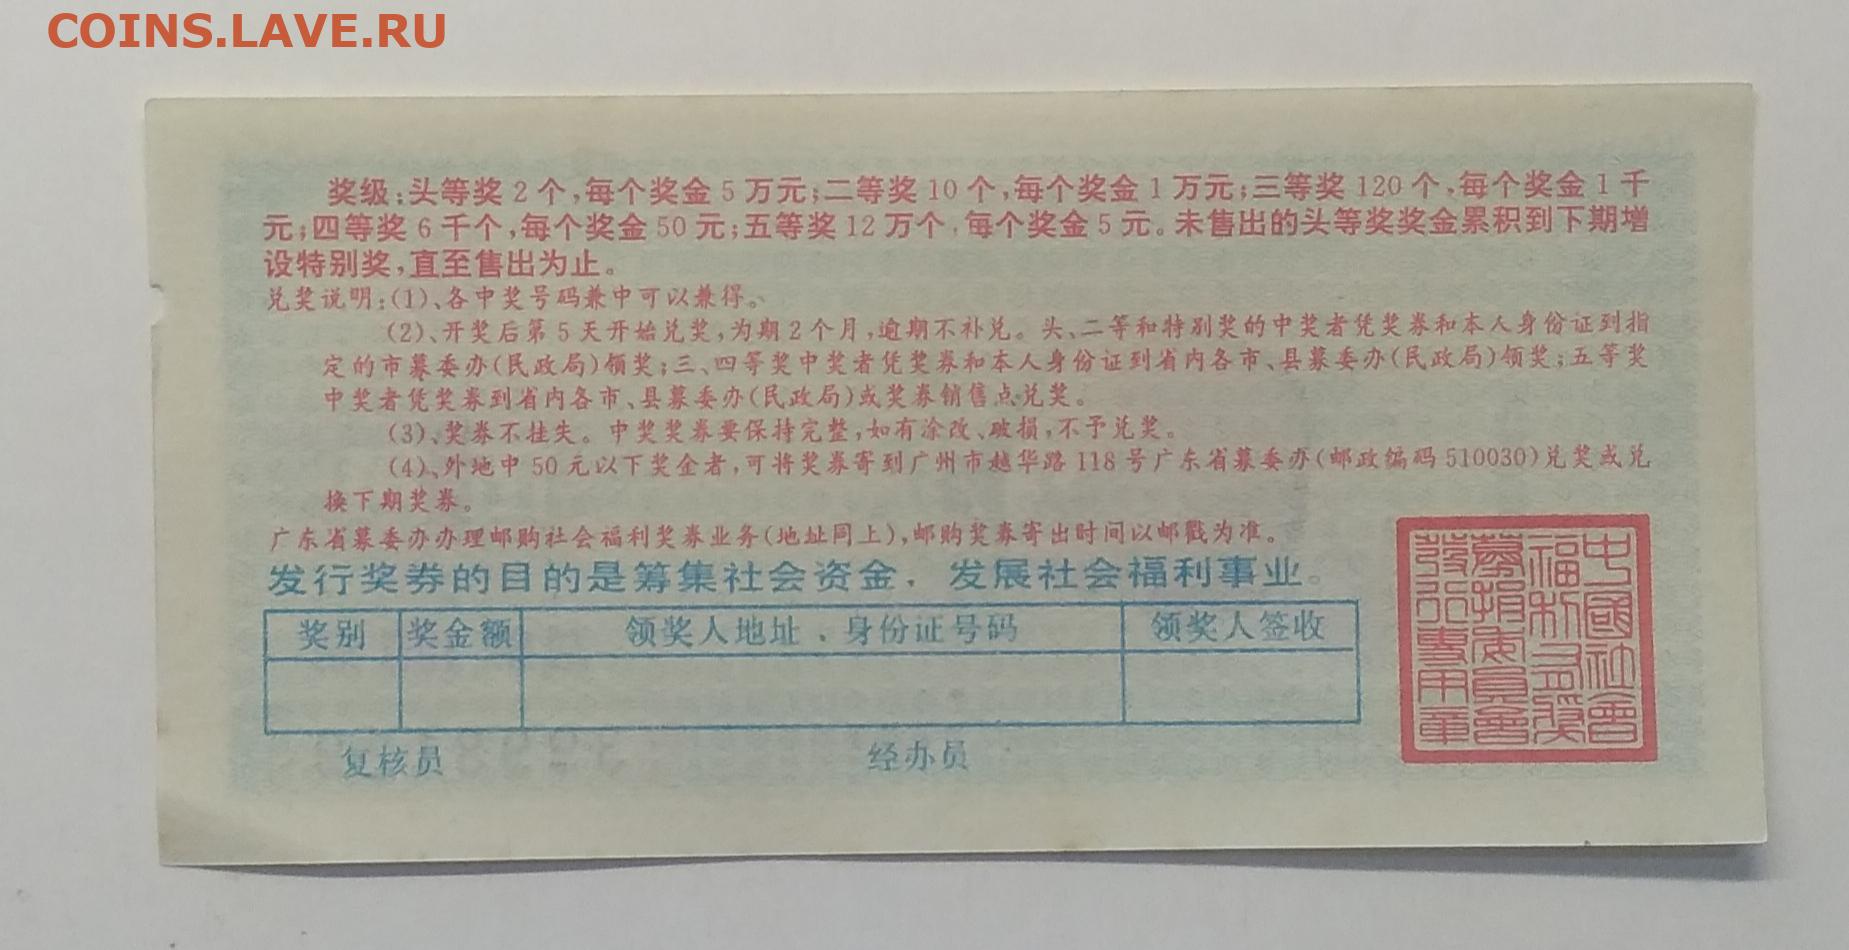 COINS.LAVE.RU
奖级:头等奖2个,每个奖金5万元;二等奖10个,每个奖金1万元;三等奖120个,每个奖金1千
元;四等奖6千个,每个奖金50元;五等奖12万个,每个奖金5元。未售出的头等奖奖金累积到下期增
设特别奖,直至售出为止。
兑奖说明:(1)、各中奖号码兼中可以兼得。
(2)、开奖后第5天开始兑奖,为期2个月,逾期不补兑。头、二等和特别奖的中奖者凭奖券和本人身份证到指
定的市募委办(民政局)领奖;三、四等奖中奖者凭奖券和本人身份证到省内各市、县募委办(民政局)领奖;五等奖
中奖者凭奖券到省内各市、县募委办(民政局)或奖券销售点兑奖。
(3)、奖券不挂失。中奖奖券要保持完整,如有涂改、破损,不予兑奖。
(4)、外地中50元以下奖金者,可将奖券寄到广州市越华路118号广东省募委办(邮政编码510030)兑奖或兑
换下期奖券。
广东省募委办办理邮购社会福利奖券业务(地址同上),邮购奖券寄出时间以邮戳为准。
发行奖券的目的是筹集社会资金,发展社会福利事业。
奖别 奖金额 领奖人地址、身份证号码 领奖人签收
复核员 经办员
中國社會
福利有奖
募捐委員會
發行專用章